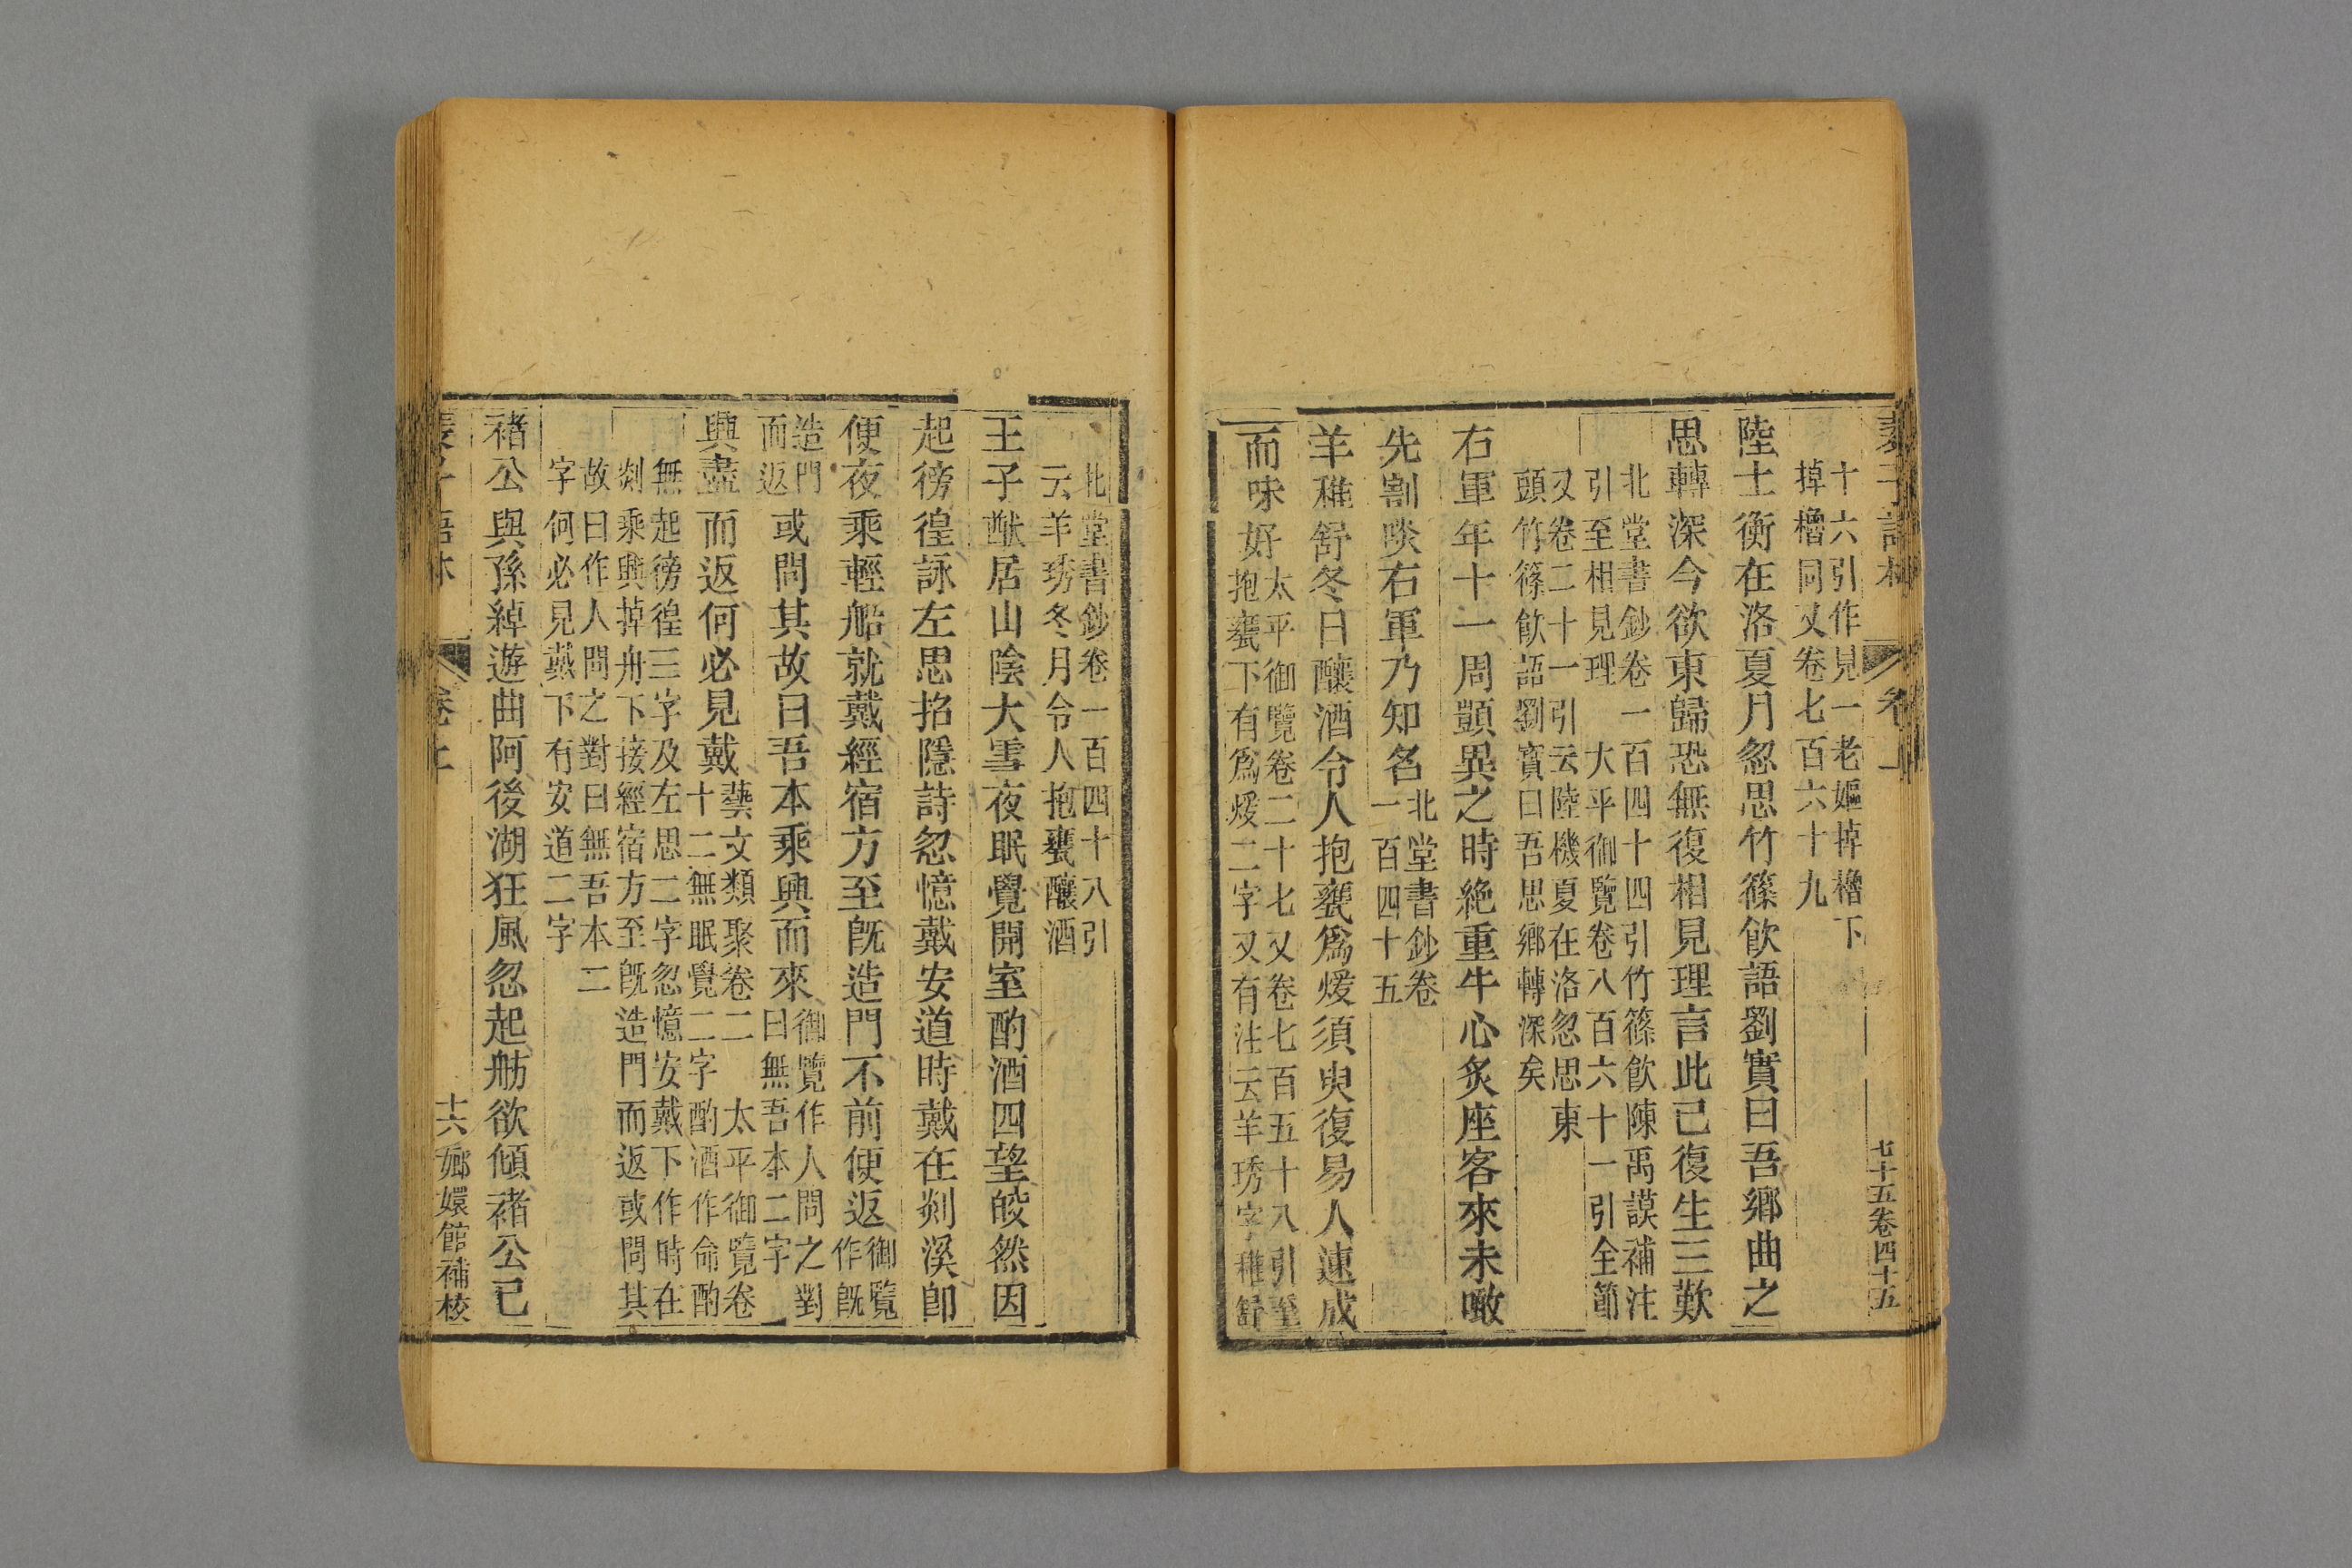 裴子語林　卷上　七十五卷四十五
十六引作見一老嫗掉櫓下
掉櫓同又卷七百六十九
陸士衡在洛夏月忽思竹篠飮語劉實曰吾鄕曲之
思轉深今欲東歸恐無復相見理言此已復生三歎
北堂書鈔卷一百四十四引竹篠飮陳禹謨補注
引至相見理　大平御覽卷八百六十一引全節
又卷二十一引云陸機夏在洛忽思東
頭竹篠飮語劉實曰吾思鄕轉深矣
右軍年十一周顗異之時絶重牛心炙座客來未噉
先割啖右軍乃知名北堂書鈔卷
一百四十五
羊稚舒冬日釀酒令人抱甕爲煖須臾復易人速成
而味好太平御覽卷二十七又卷七百五十八引至
抱甕下有爲煖二字又有注云羊琇字稚舒
北堂書鈔卷一百四十八引
云羊琇冬月令人抱甕釀酒
王子猷居山陰大雪夜眠覺開室酌酒四望皎然因
起徬徨詠左思招隱詩忽憶戴安道時戴在剡溪卽
便夜乘輕船就戴經宿方至旣造門不前便返御覽
作旣
造門
而返或問其故曰吾本乘興而來御覽作人問之對
曰無吾本二字
興盡而返何必見戴藝文類聚卷二　太平御覽卷
十二無眠覺二字酌酒作命酌
無起徬徨三字及左思二字忽憶安戴下作時在
剡乘興掉舟下接經宿方至旣造門而返或問其
故曰作人問之對曰無吾本二
字何必見戴下有安道二字
褚公與孫綽遊曲阿後湖狂風忽起舫欲傾褚公已
裴子語林　卷上　十六　嫏嬛館補校